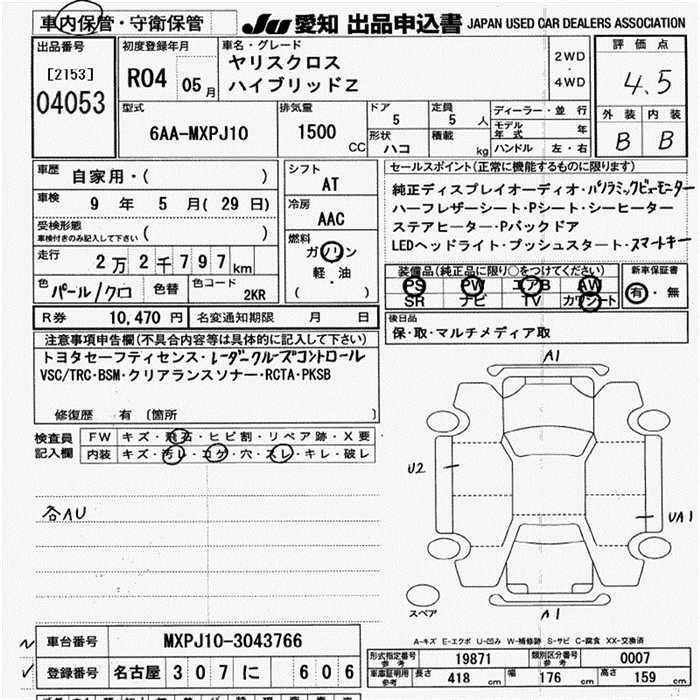 車内保管・守衛保管
JU 愛知 出品申込書 JAPAN USED CAR DEALERS ASSOCIATION
出品番号
[2153]
04053
初度登録年月
R04 05月
車名・グレード
ヤリスクロス
ハイブリッドZ
2WD
・
4WD
評価点
4.5
外装 内装
B B
型式
6AA-MXPJ10
排気量
1500 CC
ドア 5
定員 5人
形状 ハコ
積載 kg
ディーラー・並行
モデル年式 年
ハンドル 左・右
車歴 自家用・( )
車検 9年 5月(29日)
受検形態
車検付きのみ記入して下さい ( )
走行 2万2千797km
色 パール/クロ 色替 色コード 2KR
シフト
AT
冷房
AAC
燃料
ガソリン
軽・油
( )
セールスポイント(正常に機能するものに限ります)
純正ディスプレイオーディオ・パノラミックビューモニター
ハーフレザーシート・Pシート・シーヒーター
ステアヒーター・Pバックドア
LEDヘッドライト・プッシュスタート・スマートキー
装備品(純正品に限り○をつけてください)
PS PW エアB AW
SR ナビ TV カワシート
新車保証書
有・無
R券 10,470円 名変通知期限 月 日
後日品
保・取・マルチメディア取
注意事項申告欄(不具合内容等は具体的に記入して下さい)
トヨタセーフティセンス・レーダークルーズコントロール
VSC/TRC・BSM・クリアランスソナー・RCTA・PKSB
修復歴 有 〔箇所 〕
検査員記入欄
FW キズ・飛石・ヒビ割・リペア跡・X要
内装 キズ・汚レ・コゲ・穴・スレ・キレ・破レ
各AU
A1
U2
UA1
A1
スペア
A-キズ E-エクボ U-凹み W-補修跡 S-サビ C-腐食 XX-交換済
車台番号 MXPJ10-3043766
登録番号 名古屋 307 に 606
形式指定番号 参考 19871 類別区分番号 参考 0007
車庫証明用 参考 長さ 418cm 幅 176cm 高さ 159cm